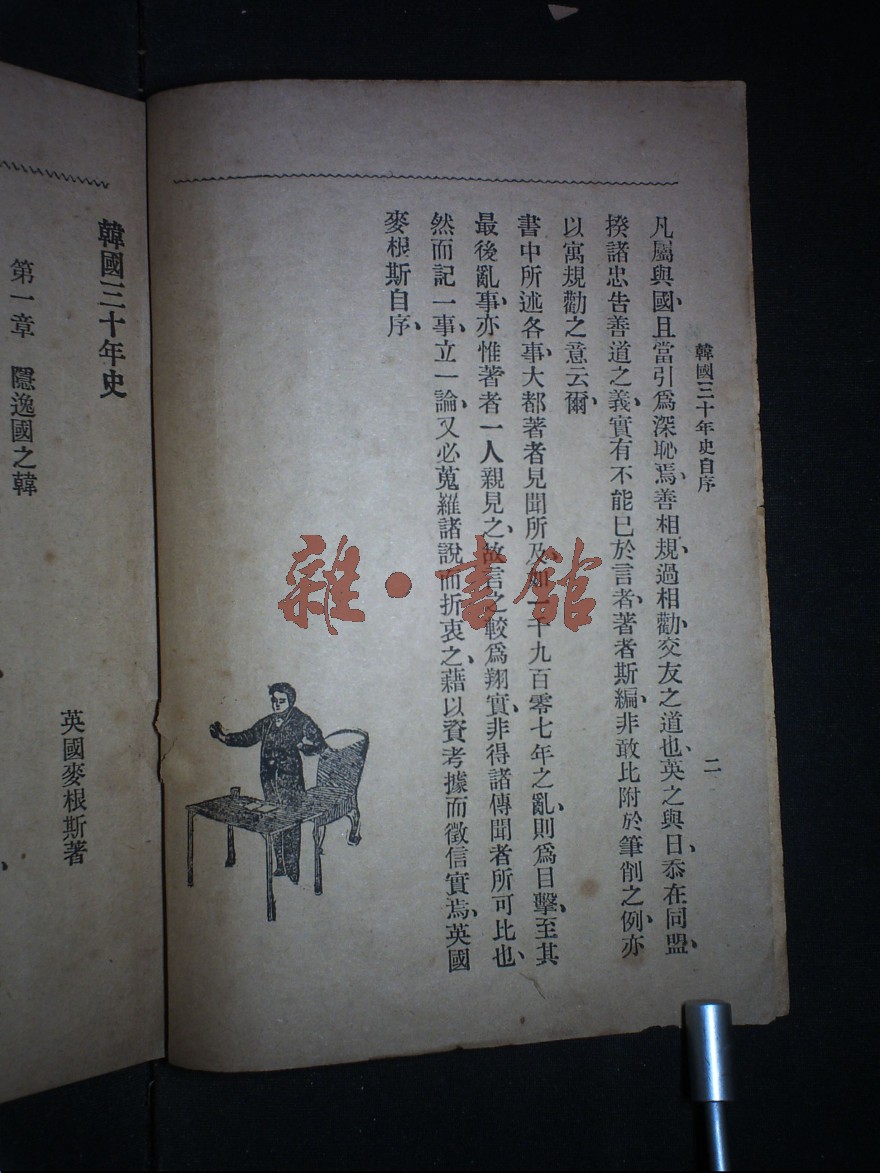 韓國三十年史自序
二
凡屬與國、且當引爲深恥焉、善相規、過相勸、交友之道也、英之與日、忝在同盟、
揆諸忠告善道之義、實有不能已於言者、著者斯編、非敢比附於筆削之例、亦
以寓規勸之意云爾、
書中所述各事、大都著者見聞所及、如一千九百零七年之亂、則爲目擊、至其
最後亂事、亦惟著者一人親見之、故言之較爲翔實、非得諸傳聞者所可比也、
然而記一事、立一論、又必蒐羅諸說而折衷之、藉以資考據而徵信實焉、英國
麥根斯自序、
韓國三十年史
英國麥根斯著
第一章 隱逸國之韓
雜·書館